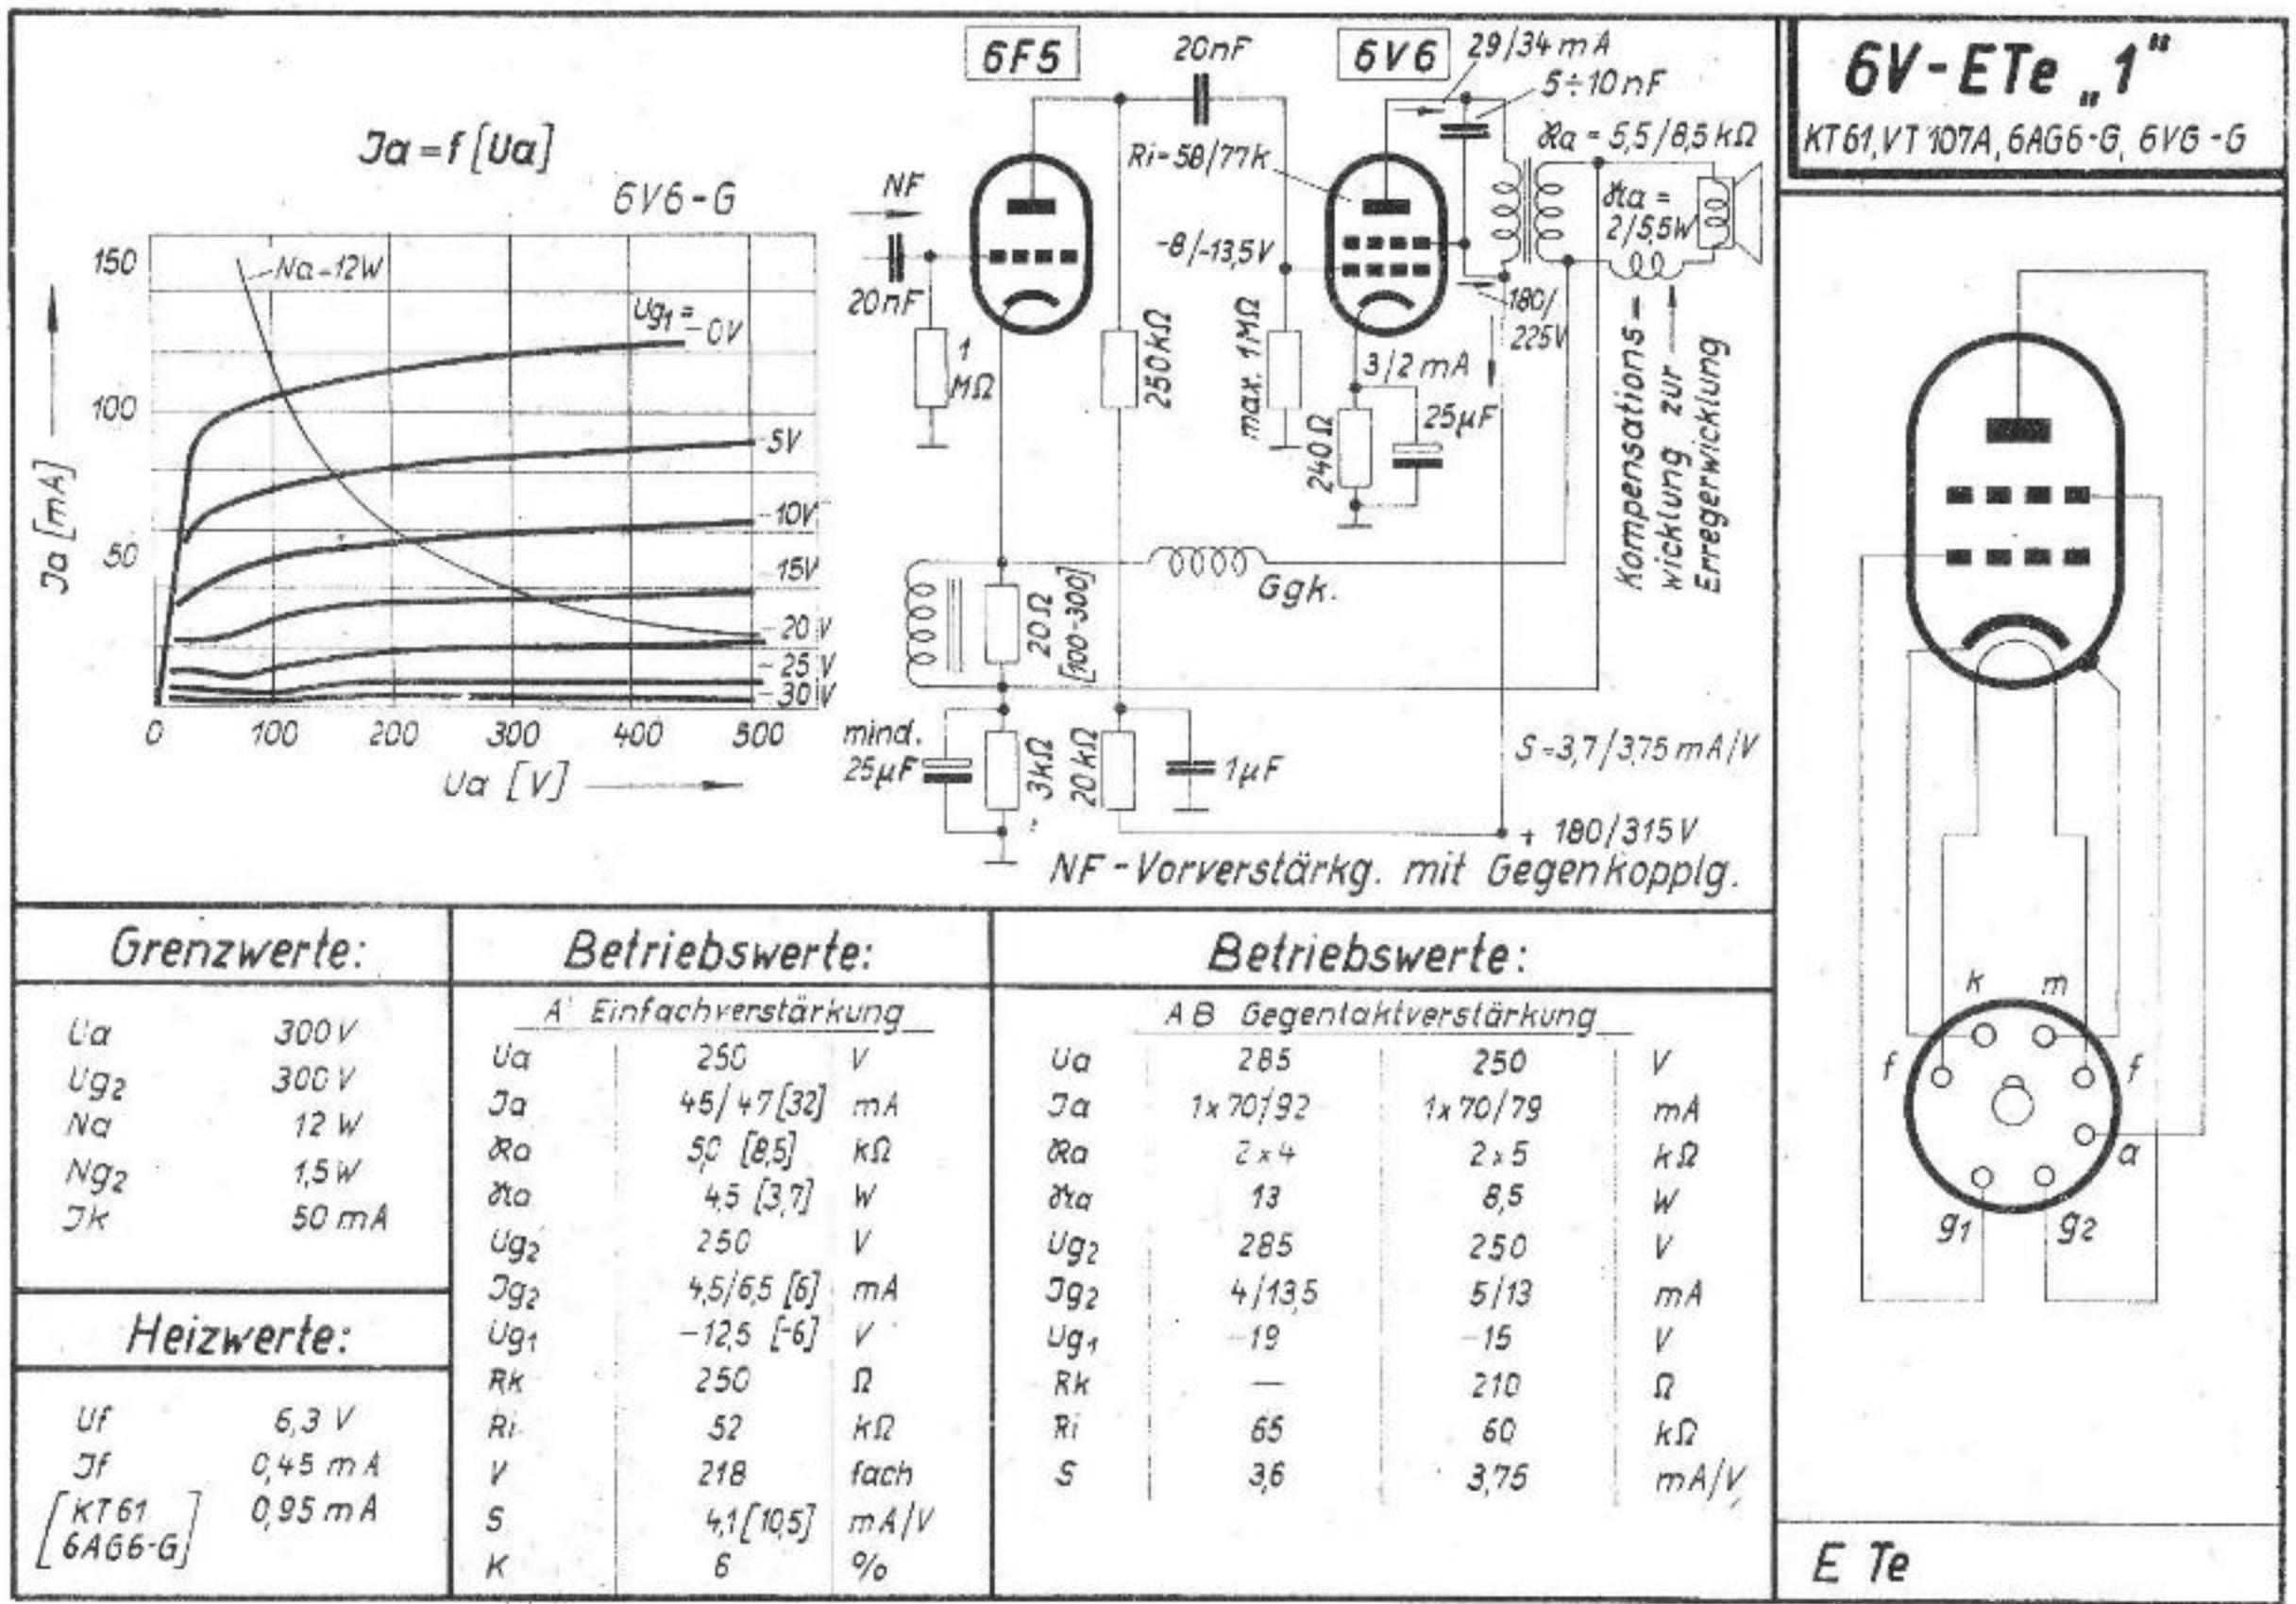 6V-ETe „1“
KT61, VT 107A, 6AG6-G, 6VG-G
Ja = f [Ua]
6V6-G
Na-12W
Ug1 =
-0V
-5V
-10V
-15V
-20V
-25V
-30V
150
100
50
Ja [mA]
0 100 200 300 400 500
Ua [V]
6F5
20nF
6V6
29/34 mA
5÷10nF
Ri-58/77k
ℜa = 5,5/8,5 kΩ
𝔑a =
2/5,5W
NF
20nF
1
MΩ
250kΩ
-8/-13,5V
max. 1MΩ
180/
225V
3/2 mA
240Ω
25µF
Kompensations-
wicklung zur
Erregerwicklung
Ggk.
20Ω
[100-300]
mind.
25µF
3kΩ
20kΩ
1µF
S=3,7/3,75 mA/V
+ 180/315V
NF-Vorverstärkg. mit Gegenkopplg.
Grenzwerte:
Ua 300V
Ug2 300V
Na 12 W
Ng2 1,5W
Jk 50 mA
Heizwerte:
Uf 6,3 V
Jf 0,45 mA
[KT61 0,95 mA
6AG6-G]
Betriebswerte:
A' Einfachverstärkung
Ua 250 V
Ja 45/47[32] mA
ℜa 5,0 [8,5] kΩ
𝔑a 4,5 [3,7] W
Ug2 250 V
Jg2 4,5/6,5 [6] mA
Ug1 -12,5 [-6] V
Rk 250 Ω
Ri 52 kΩ
V 218 fach
S 4,1[10,5] mA/V
K 6 %
Betriebswerte:
AB Gegentaktverstärkung
Ua 285 250 V
Ja 1x70/92 1x70/79 mA
ℜa 2x4 2x5 kΩ
𝔑a 13 8,5 W
Ug2 285 250 V
Jg2 4/13,5 5/13 mA
Ug1 -19 -15 V
Rk — 210 Ω
Ri 65 60 kΩ
S 3,6 3,75 mA/V
k m
f f
a
g1 g2
E Te